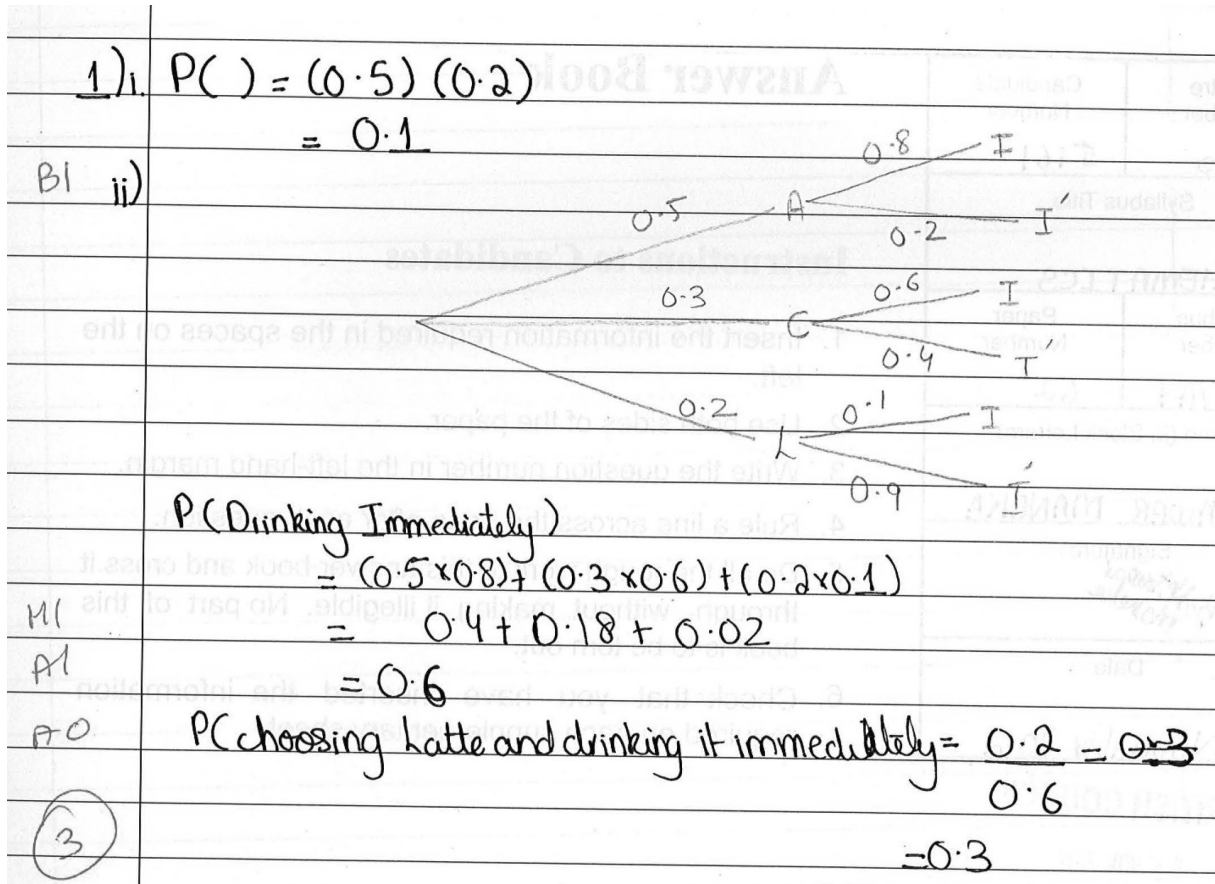 1)i. P( ) = (0.5) (0.2)
= 0.1
B1 ii)
0.8 I
0.5 A
0.2 I'
0.3 C 0.6 I
0.4 I
0.2 L 0.1 I
0.9 I'
P(Drinking Immediately)
= (0.5×0.8)+(0.3×0.6)+(0.2×0.1)
M1 = 0.4+0.18+0.02
A1 = 0.6
A0 P(choosing Latte and drinking it immediately = 0.2/0.6 = 0.3
3 =0.3